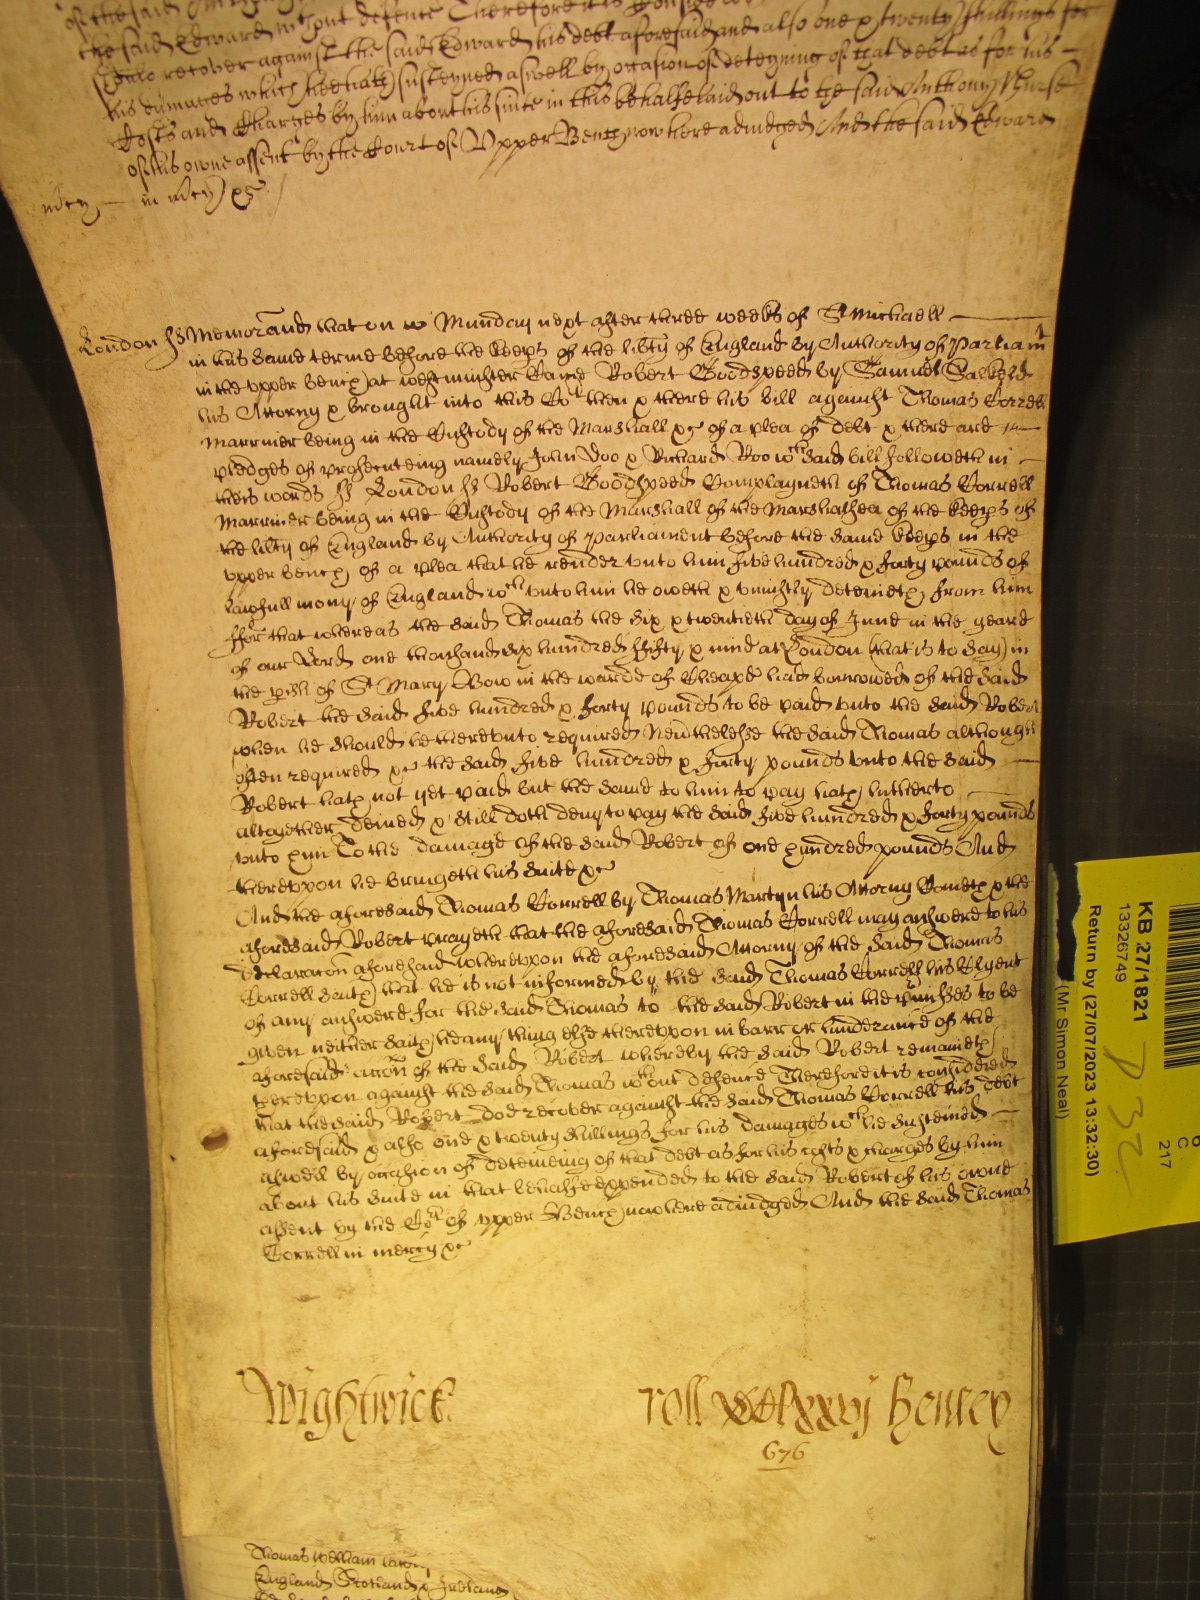 the said Edward without defence Therefore it is
recover against the said Edward his debt aforesaid and also one & twenty shillings for
his damages which hee hath susteyned aswell by occasion of deteyning of that debt as for his
Costs and Charges by him about his suite in this behalfe laid out to the said Anthony
of his owne assent by the Court of Upper Bench now here adiudged And the said Edward
mcy in mcy &c
London ss Memorand that on Munday next after three weeks of St Michaell
in this same terme before the Keeps of the libty of England by Authority of Parliamt
in the upper bench at westminster Came Robert Goodspeed by Samuel
his Attorny & brought into this Cort then & there his bill against Thomas Correll
marriner being in the Custody of the Marshall &c of a plea of debt & there are
pledges of prosecuteing namely John Doo & Richard Roo wch said bill followeth in
theis words ss London ss Robert Goodspeed Complayneth of Thomas Correll
Marriner being in the Custody of the Marshall of the Marshalsea of the keeps of
the libty of England by Authority of Parliament before the same keeps in the
upper bench of a plea that he render unto him five hundred & forty pounds of
lawfull mony of England wch unto him he oweth & uniustly deteineth from him
ffor that whereas the said Thomas the six & twentieth day of June in the yeare
of our Lord one thousand six hundred ffifty & nine at London (that is to say) in
the pish of St Mary Bow in the warde of Cheape had borrowed of the said
Robert the said five hundred & forty pounds to be paid unto the said Robert
when he should be thereunto required Nevthelesse the said Thomas although
often required &c the said five hundred & forty pounds unto the said
Robert hath not yet paid but the same to him to pay hath hitherto
altogether denied & still doth deny to pay the said five hundred & forty pounds
unto him To the damage of the said Robert of one hundred pounds And
thereupon he bringeth his suite &c
And the aforesaid Thomas Correll by Thomas Martyn his Attorny Cometh & the
aforesaid Robert prayeth that the aforesaid Thomas Correll may answere to his
declaracon aforesaid whereupon the aforesaid Attorny of the said Thomas
Correll saith that he is not informed by the said Thomas Correll his Clyent
of any answere for the said Thomas to the said Robert in the pmisses to be
given neither saith he any thing else thereupon in barr or hinderance of the
aforesaid accon of the said Robert whereby the said Robert remaineth
thereupon against the said Thomas wthout defence Therefore it is considered
that the said Robert doe recover against the said Thomas Correll his debt
aforesaid & also one & twenty shillings for his damages wch he susteined
aswell by occasion of deteineing of that debt as for his costs & charges by him
about his suite in that behalfe expended to the said Robert of his owne
assent by the Cort of upper Bench now here adiudged And the said Thomas
Correll in mercy &c
Wightwick
roll Henley
676
Thomas William
England Scotland & Ireland
KB 27/1821
13326749
Return by (27/07/2023 13:32:30)
(Mr Simon Neal)
C
217